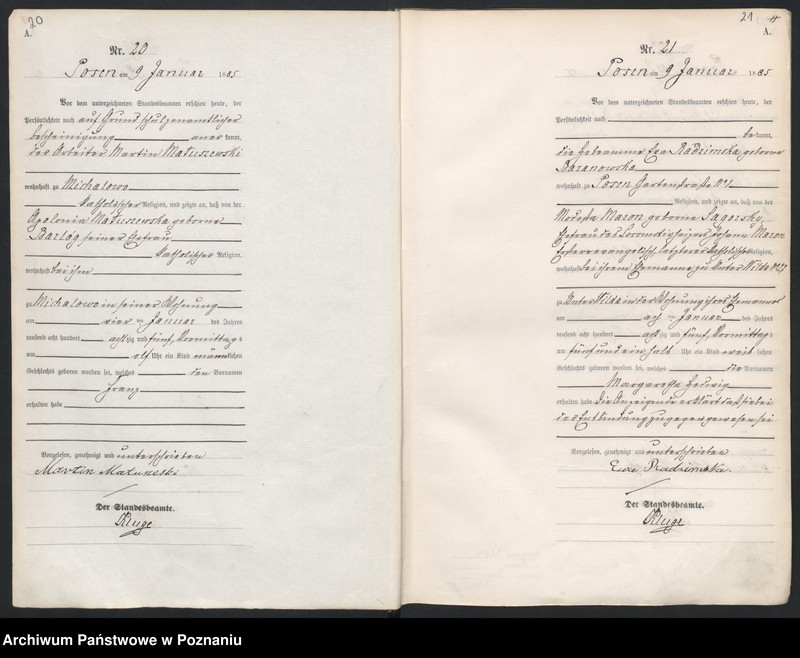 20
A.
Nr. 20
Posen am 9 Januar 1885
Vor dem unterzeichneten Standesbeamten erschien heute, der
Persönlichkeit nach auf Grund schulzenamtlicher
Bescheinigung anerkannt,
der Arbeiter Martin Matuszewski
wohnhaft zu Michalowo
katholischer Religion, und zeigte an, daß von der
Apolonia Matuszewska geborene
Barlog seiner Ehefrau
katholischer Religion,
wohnhaft bei ihm
zu Michalowo in seiner Wohnung
am vier ten Januar des Jahres
tausend acht hundert achtzig und fünf, Vormittags
um elf Uhr ein Kind männlichen
Geschlechts geboren worden sei, welches den Vornamen
Franz
erhalten habe
Vorgelesen, genehmigt und unterschrieben
Martin Matuszeski
Der Standesbeamte.
Kluge
21
A.
Nr. 21
Posen am 9 Januar 1885
Vor dem unterzeichneten Standesbeamten erschien heute, der
Persönlichkeit nach
bekannt,
die Hebeamme Eva Radzimska geborene
Baranowska
wohnhaft zu Posen Gartenstraße No 1
Religion, und zeigte an, daß von der
Modesta Maron geborene Sagorsky,
Ehefrau des Johann Maron
Erstere evangelisch, letzterer katholischer Religion,
wohnhaft bei ihrem Ehemanne zu Unter Wilda No 27
zu Unter Wilda in der Wohnung ihres Ehemannes
am acht ten Januar des Jahres
tausend acht hundert achtzig und fünf, Vormittags
um fünf und ein halb Uhr ein Kind weiblichen
Geschlechts geboren worden sei, welches die Vornamen
Margarethe Hedwig
erhalten habe Die Anzeigende erklärt daß sie bei
der Entbindung zugegen gewesen sei
Vorgelesen, genehmigt und unterschrieben
Ewa Radzimska.
Der Standesbeamte.
Kluge
Archiwum Państwowe w Poznaniu